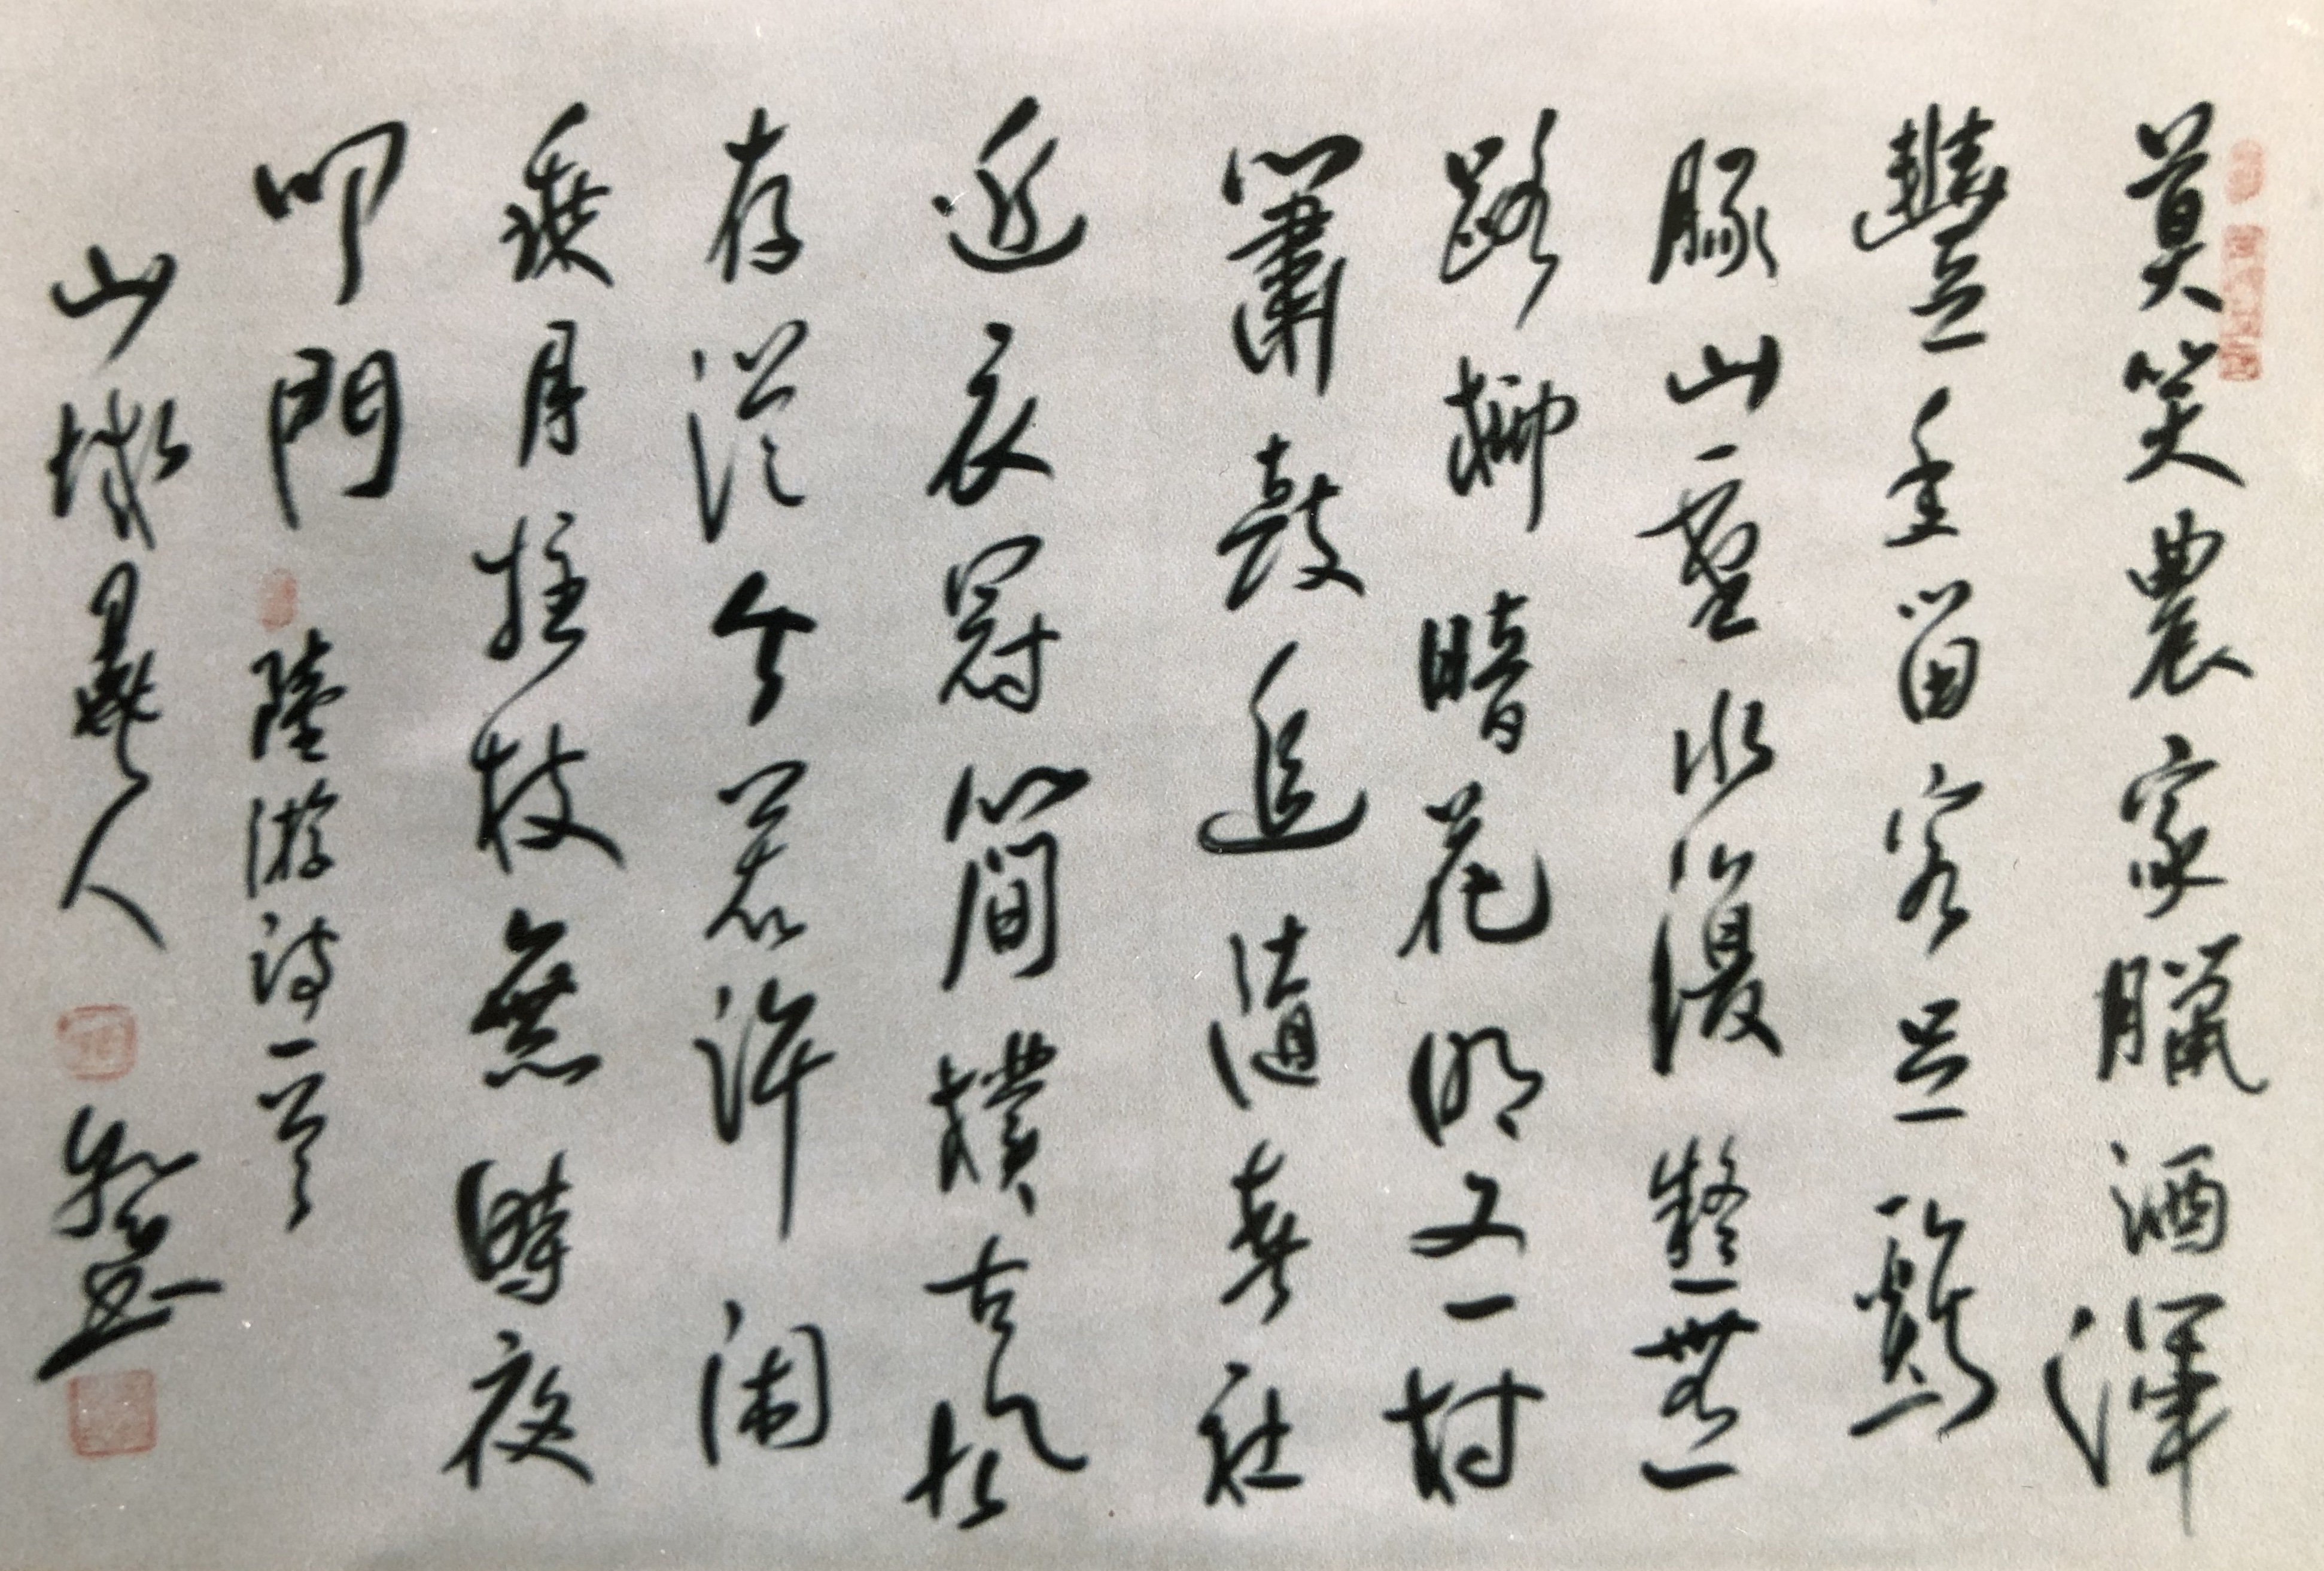 莫笑農家臘酒渾
豐年留客足雞
豚山重水復疑無
路柳暗花明又一村
簫鼓追隨春社
近衣冠簡樸古風
存從今若許閑
乘月拄杖無時夜
叩門 陸游詩一首
山城人